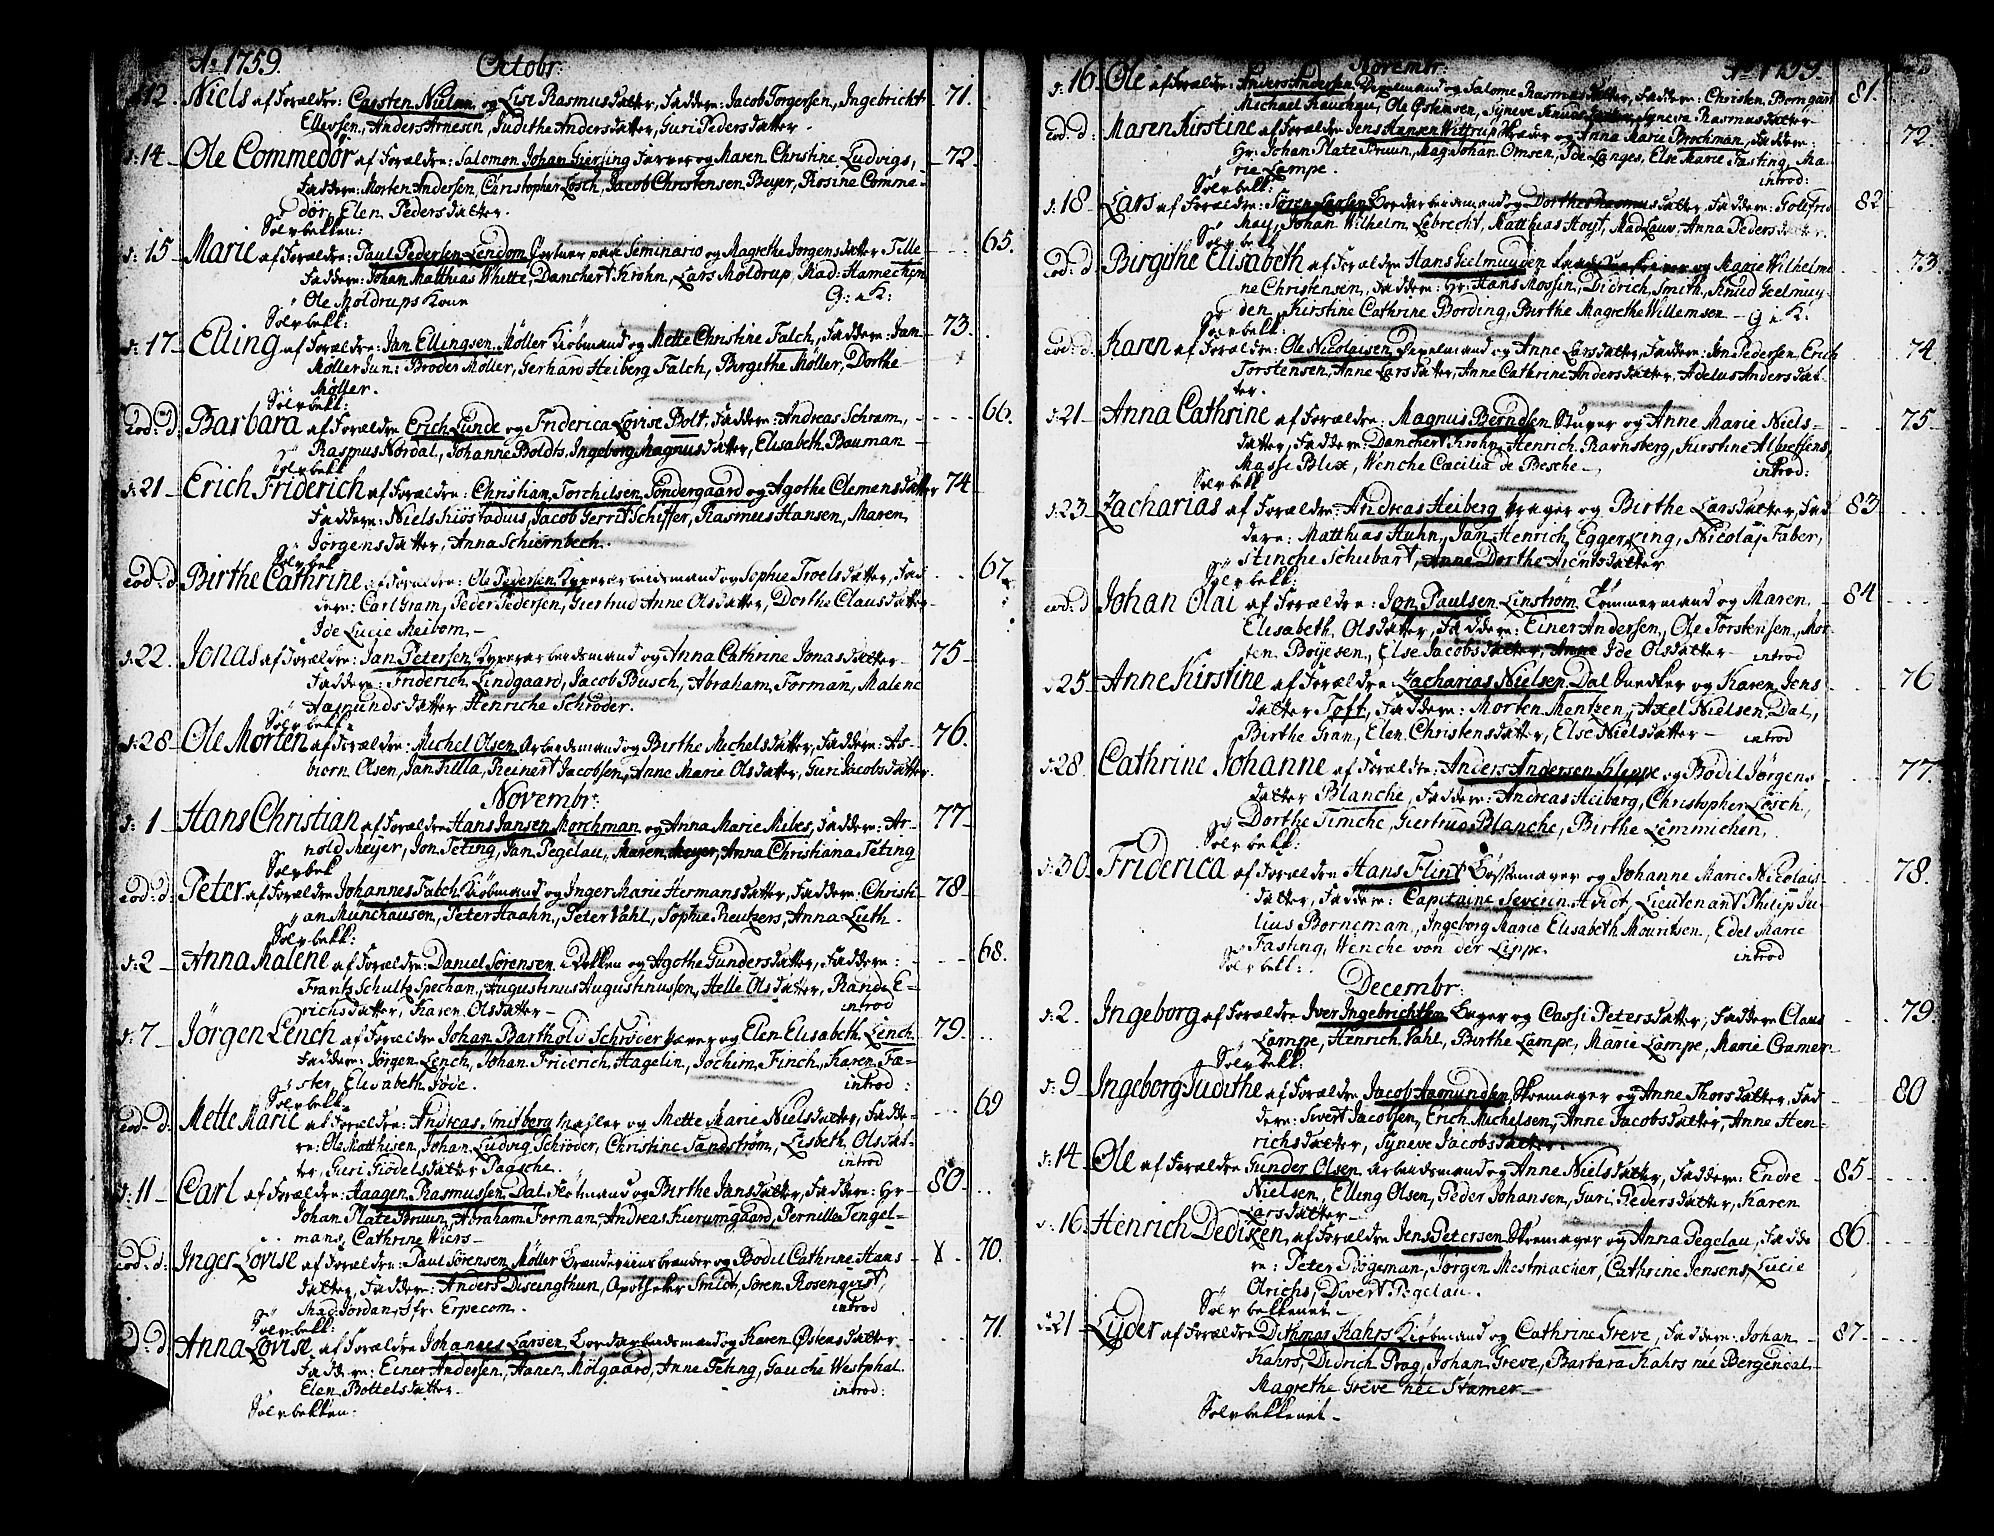 Ao 1759. Octobr:
d: 12. Niels af Forældre: Carsten Nielsen og Lise Rasmusdatter, Faddere: Jacob Torgersen, Ingebricht 71.
Ellevsen, Anders Arnesen, Judithe Andersdatter, Guri Pedersdatter.
d: 14 Ole Commedör af Forældre: Salomon Johan Giersing Farver og Maren Christine Ludvigs, 72
Faddere: Morten Andersen, Christopher Lösch, Jacob Christensen Beyer, Rosine Comme-
dör, Elen Pedersdatter.
Sölvbekken:
d: 15 Marie af Forældre: Paul Pedersen Lendom Portner paa Seminario og Magrethe Jörgensdatter Tille 65.
Faddere: Johan Matthias Whitte, Danchert Krohn, Lars Moldrup, Mad: Hameckijn
Ole Moldrups Kone G: i K:
Sölvbekk:
d: 17 Elling af Forældre: Jan Ellingsen Möller Kiöbmand og Mette Christine Falch, Faddere: Jan 73.
Möller Jun: Broder Möller, Gerhard Heiberg Falch, Birgithe Möller, Dorthe
Möller.
Sölvbekk:
eod: d: Barbara af Forældre Erich Lunde og Friderica Lovise Bolt, Faddere: Andreas Schram, 66.
Rasmus Nordal, Johanne Boldts, Ingeborg Magnusdatter, Elisabeth Bauman
Sölvbekk
d: 21 Erich Friderich af Forældre: Christian Torchilsen Söndergaard og Agothe Clemensdatter 74
Faddere: Niels Kiöstadius, Jacob Gerrit Schiffer, Rasmus Hansen, Maren
Jörgensdatter, Anna Schiernbech.
Sölvbek
eod: d Birthe Cathrine af Forældre: Ole Pedersen Kyperarbeidsmand og Sophie Troelsdatter, Fad 67.
dere: Carl Gram, Peder Pedersen, Giertrud Anne Olsdatter, Dorthe Clausdatter
Ide Lucie Meibom.
d: 22. Jonas af Forældre: Jan Petersen Kyperarbeidsmand og Anna Cathrine Jonasdatter 75
Faddere: Friderich Lindgaard, Jacob Busch, Abraham Forman, Malene
Aamundsdatter Henriche Schröder.
Sölvbekk:
d: 28 Ole Morten af Forældre: Michel Olsen Arbeidsmand og Birthe Michelsdatter, Faddere: As- 76.
biorn Olsen, Jan Tilla, Reinert Jacobsen, Anne Marie Olsdatter, Guri Jacobsdatter.
Novembr:
d: 1 Hans Christian af Forældre Hans Jansen Morchman og Anna Marie Miles, Faddere: Ar- 77
nold Meyer, Jon Teting, Jan Pegelau, Maren Meyer, Anna Christiana Teting
Sölvbek
eod: d: Peter af Forældre Johannes Falch Kiöbmand og Inger Marie Hermansdatter, Faddere: Christi 78
an Münchausen, Peter Haahn, Peter Vahl, Sophie Reutzers, Anna Luth.
Sölvbekk:
d: 2 Anna Malene af Forældre: Daniel Sörensen i Dokken og Agothe Gundersdatter, Faddere: 68.
Frantz Schultz Spechan, Augustinus Augustinussen, Helle Olsdatter, Rande E-
richsdatter, Karen Olsdatter introd
d: 7 Jörgen Lench af Forældre Johan Barthold Schröder og Elen Elisabeth Lench 79.
Faddere: Jörgen Lench, Johan Friderich Hagelin, Jochim Finch, Karen Fa-
ster, Elisabeth Jöde. introd:
Sölvbekk
eod: d: Mette Marie af Forældre: Andreas Smitberg Mægler og Mette Marie Nielsdatter, Fadde- 69
re: Ole Matthisen, Johan Ludvig Schröder, Christine Sandström, Lisbeth Olsdat-
ter, Guri Giödelsdatter Pagsche. introd
d: 11 Carl af Forældre: Haagen Rasmussen Dal Flötmand og Birthe Jansdatter, Faddere: Hr 80
Johan Plate Bruun, Abraham Forman, Andreas Kierumgaard, Pernille Tengel-
mans, Cathrine Wiers
eod: d: Inger Lovise af Forældre: Paul Sörensen Möller Brændeviinsbrænder og Bodil Cathrine Hans X 70.
datter, Faddere: Anders Diseingthun, Apotheker Smidt, Sören Rosenqvist,
Mad: Jordan, Jfr. Erpecom. introd
Sölvbekk:
d: d Anna Lovise af Forældre Johannes Larsen Bordarbeidsmand og Karen Östensdatter 71.
Faddere: Einer Andersen, Hanen Mölgaard, Anne Fehng, Gauche Westphal
Elen Bottelsdatter. introd:
Sölvbekken:
Novembr: Ao 1759.
d: 16 Ole af Forældre: Anders Andersen Dypelmand og Salome Rasmusdatter, Faddere: Christen Borngard 81.
Michael Rauchgu, Ole Östensen, Syneve Knudsdatter, Syneve Rasmusdatter
eod: d: Maren Kirstine af Forældre Jens Hansen Wittrup Skræder og Anna Marie Brochman, Faddere: 72.
Hr: Johan Plate Bruun, Mag: Johan Omsen, Ide Langes, Else Marie Fasting, Ma-
rie Lampe. introd:
Sölvbekk:
d: 18 Lars af Forældre: Sören Larsen Bordarbeidsmand og Dorthe Rasmusdatter, Faddere: Gotfrid 82
May, Johan Wilhelm Lebrecht, Matthias Hoyst, Mad Lauw, Anna Pedersdatter.
Sölvbekk
eod: d Birgithe Elisabeth af Forældre Hans Gielmuyden og Marie Wilhelmi 73.
ne Christensen, Faddere: Hr: Hans Mossin, Didrich Smith, Knud Geelmuy-
den, Kirstine Cathrine Bording, Birthe Magrethe Willemsen G i K.
Sölvbekk:
eod: d. Karen af Forældre: Ole Nicolaisen Dypelmand og Anne Larsdatter, Faddere: Jon Pedersen, Erich 74
Torstensen, Anne Larsdatter, Anne Cathrine Andersdatter, Adelus Andersdat-
ter.
d: 21 Anna Cathrine af Forældre: Magnus Berndsen Stuver og Anne Marie Niels- 75
datter, Faddere: Danchert Krohn, Henrich Barnsberg, Kirstine Albretsens,
Masse Blix, Wenche Cæcilia de Besche introd:
Sölvbekk
d: 23 Zacharias af Forældre: Andreas Heiberg Krager og Birthe Larsdatter, Fad 83
dere: Matthias Huhn, Jan Henrich Eggerking, Nicolaj Faber,
Stinche Schubart, Anne Dorthe Arentsdatter
Sölvbekk:
eod: d Johan Olai af Forældre: Jon Paulsen Linström Tömmermand og Maren 84
Elisabeth Olsdatter, Faddere: Einer Andersen, Ole Torstensen, Mor-
ten Boyesen, Else Jacobsdatter, Ide Olsdatter introd
d: 25 Anne Kirstine af Forældre: Zacharias Nielsen Dal Snedker og Karen Jens 76
datter Toft, Faddere: Morten Mentzen, Axel Nielsen Dal,
Birthe Gran, Elen Christensdatter, Else Nielsdatter introd
d: 28 Cathrine Johanne af Forældre: Anders Andersen Kleppe og Bodil Jörgens 77.
datter Blanche, Faddere: Andreas Heiberg, Christopher Lösch,
Dorthe Timche, Giertrud Blanche, Birthe Lemmichen,
Sölvbekk:
d: 30 Friderica af Forældre Hans Flint Bössemager og Johanne Marie Nicolais 78.
datter, Faddere: Capitaine Severin Aidt, Lieutenant Philip Ju-
lius Borneman, Ingeborg Marie Elisabeth Mouritsen, Edel Marie
Fasting, Wenche von der Lippe. introd
Sölvbekk:
Decembr:
d: 2. Ingeborg af Forældre Iver Ingebrichtsen Bager og Cassi Petersdatter, Faddere Claus 79
Lampe, Henrich Vahl, Birthe Lampe, Marie Lampe, Marie Cramer.
Sölvbekk:
d: 9 Ingeborg Judithe af Forældre Jacob Aamundsen Skoemager og Anne Thorsdatter, Fad 80
dere: Sivert Jacobsen, Erich Michelsen, Anne Jacobsdatter, Anne Hen-
richsdatter, Syneve Jacobsdatter.
d: 14 Ole af Forældre Gunder Olsen Arbeidsmand og Anne Nielsdatter, Faddere: Endre 85
Nielsen, Elling Olsen, Peder Johansen, Guri Pedersdatter, Karen
Larsdatter
d: 16 Henrich Dediken af Forældre Jens Petersen Skoemager og Anna Pegelau, Fadde 86
re: Peter Dögeman, Jörgen Mestmacher, Cathrine Jensens, Lucie
Olrichs, Divert Pegelau.
Sölvbekkenet
d: 21 Lyder af Forældre Dithmas Kahrs Kiöbmand og Cathrine Greve, Faddere: Johan 87
Kahrs, Didrich Prag, Johan Greve, Barbara Kahrs née Bergendal
Magrethe Greve née Stamer
Sölvbekkenet